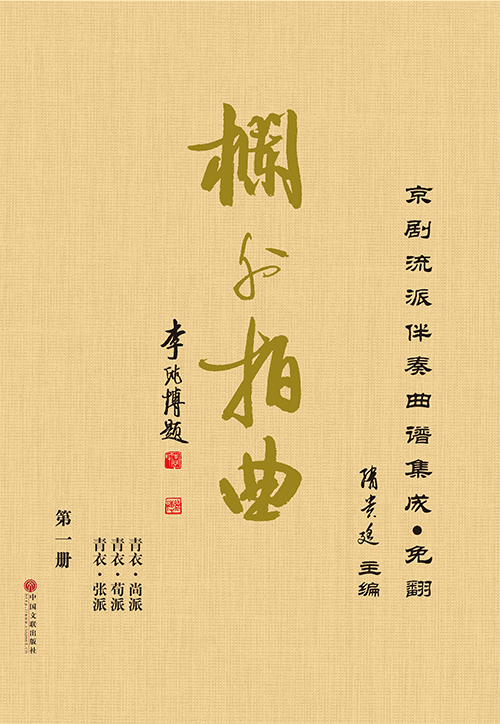 京剧流派伴奏曲谱集成·免翻
隋贵廷 主编
欄外拍曲
李兆博题
青衣·尚派
青衣·荀派
青衣·张派
第一册
中国文联出版社